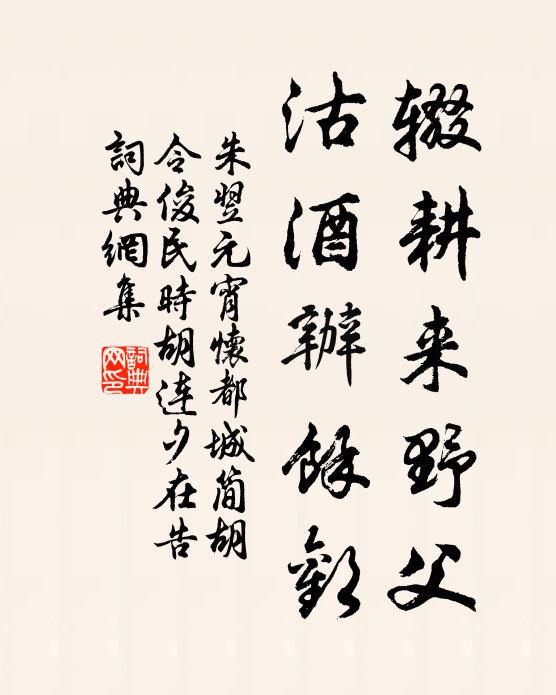 辍耕来野父
沽酒辦餘歡
朱翌元宵懷都城簡胡
令俊民時胡連夕在告
詞典網集
詞典網印